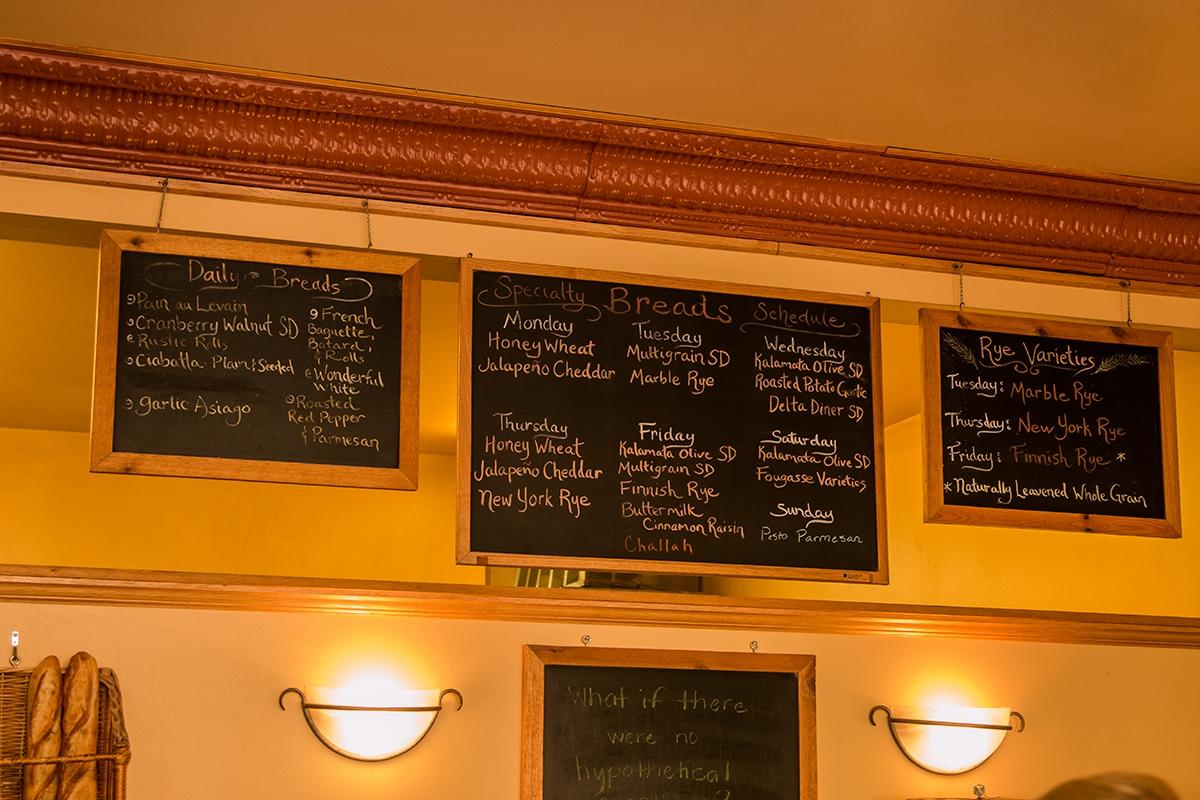 Daily Breads
Pain au Levain
Cranberry Walnut SD
Rustic Rolls
Ciabatta Plain & Seeded
Garlic Asiago
French
Baguette,
Batard,
& Rolls
Wonderful
White
Roasted
Red Pepper
& Parmesan
Specialty Breads Schedule
Monday
Honey Wheat
Jalapeño Cheddar
Tuesday
Multigrain SD
Marble Rye
Wednesday
Kalamata Olive SD
Roasted Potato Garlic
Delta Diner SD
Thursday
Honey Wheat
Jalapeño Cheddar
New York Rye
Friday
Kalamata Olive SD
Multigrain SD
Finnish Rye
Buttermilk
Cinnamon Raisin
Challah
Saturday
Kalamata Olive SD
Fougasse Varieties
Sunday
Pesto Parmesan
Rye Varieties
Tuesday: Marble Rye
Thursday: New York Rye
Friday: Finnish Rye *
*Naturally Leavened Whole Grain
What if there
were no
hypothetical